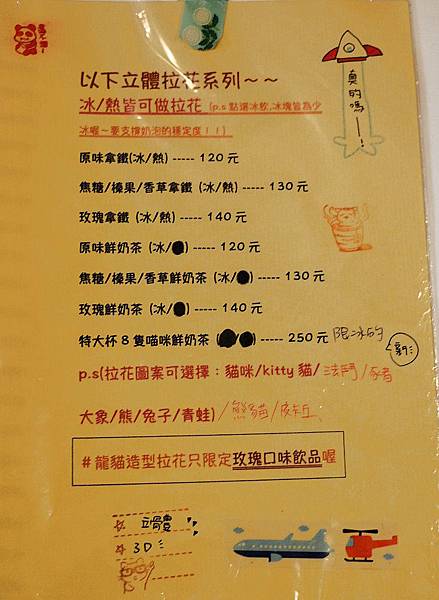 真的嗎—！
以下立體拉花系列～～
冰/熱皆可做拉花 (p.s 點選冰飲,冰塊皆為少
冰喔～要支撐奶泡的穩定度！！)
原味拿鐵(冰/熱) ----- 120 元
焦糖/榛果/香草拿鐵 (冰/熱) ----- 130 元
玫瑰拿鐵 (冰/熱) ----- 140 元
原味鮮奶茶 (冰/ ) ----- 120 元
焦糖/榛果/香草鮮奶茶 (冰/ ) ----- 130 元
玫瑰鮮奶茶 (冰/ ) ----- 140 元
特大杯 8 隻喵咪鮮奶茶 ( / ) ----- 250 元 限冰的
p.s(拉花圖案可選擇：貓咪/kitty 貓/法鬥/豬
大象/熊/兔子/青蛙)/熊貓/皮卡丘
#龍貓造型拉花只限定玫瑰口味飲品喔
☆ 立體
☆ 3D